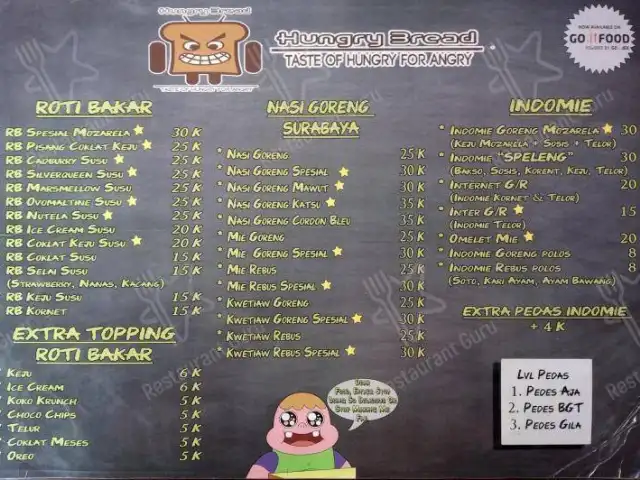 Hungry Bread
TASTE OF HUNGRY FOR ANGRY
Hungry Bread
TASTE OF HUNGRY FOR ANGRY
NOW AVAILABLE ON
GO FOOD
ROTI BAKAR
RB SPESIAL MOZARELA 30 K
RB PISANG COKLAT KEJU 25 K
RB CADBURRY SUSU 25 K
RB SILVERQUEEN SUSU 25 K
RB MARSMELLOW SUSU 25 K
RB OVOMALTINE SUSU 25 K
RB NUTELA SUSU 25 K
RB ICE CREAM SUSU 20 K
RB COKLAT KEJU SUSU 20 K
RB COKLAT SUSU 15 K
RB SELAI SUSU 15 K
(STRAWBERRY, NANAS, KACANG)
RB KEJU SUSU 15 K
RB KORNET 15 K
EXTRA TOPPING
ROTI BAKAR
KEJU 6 K
ICE CREAM 6 K
KOKO KRUNCH 5 K
CHOCO CHIPS 5 K
TELUR 5 K
COKLAT MESES 5 K
OREO 5 K
NASI GORENG
SURABAYA
* NASI GORENG 25 K
* NASI GORENG SPESIAL 30 K
* NASI GORENG MAWUT 30 K
* NASI GORENG KATSU 35 K
* NASI GORENG CORDON BLEU 35 K
* MIE GORENG 25 K
* MIE GORENG SPESIAL 30 K
* MIE REBUS 25 K
* MIE REBUS SPESIAL 30 K
* KWETIAW GORENG 25 K
* KWETIAW GORENG SPESIAL 30 K
* KWETIAW REBUS 25 K
* KWETIAW REBUS SPESIAL 30 K
INDOMIE
* INDOMIE GORENG MOZARELA 30
(KEJU MOZARELA + SOSIS + TELOR)
* INDOMIE "SPELENG" 30
(BAKSO, SOSIS, KORENT, KEJU, TELOR)
* INTERNET G/R 20
(INDOMIE KORNET & TELOR)
* INTER G/R 15
(INDOMIE TELOR)
* OMELET MIE 20
* INDOMIE GORENG POLOS 8
* INDOMIE REBUS POLOS 8
(SOTO, KARI AYAM, AYAM BAWANG)
EXTRA PEDAS INDOMIE
+ 4 K
LVL PEDAS
1. PEDES AJA
2. PEDES BGT
3. PEDES GILA
DEAR
FOOD, EITHER STOP
BEING SO DELICIOUS OR
STOP MAKING ME
FAT
Restaurant Guru